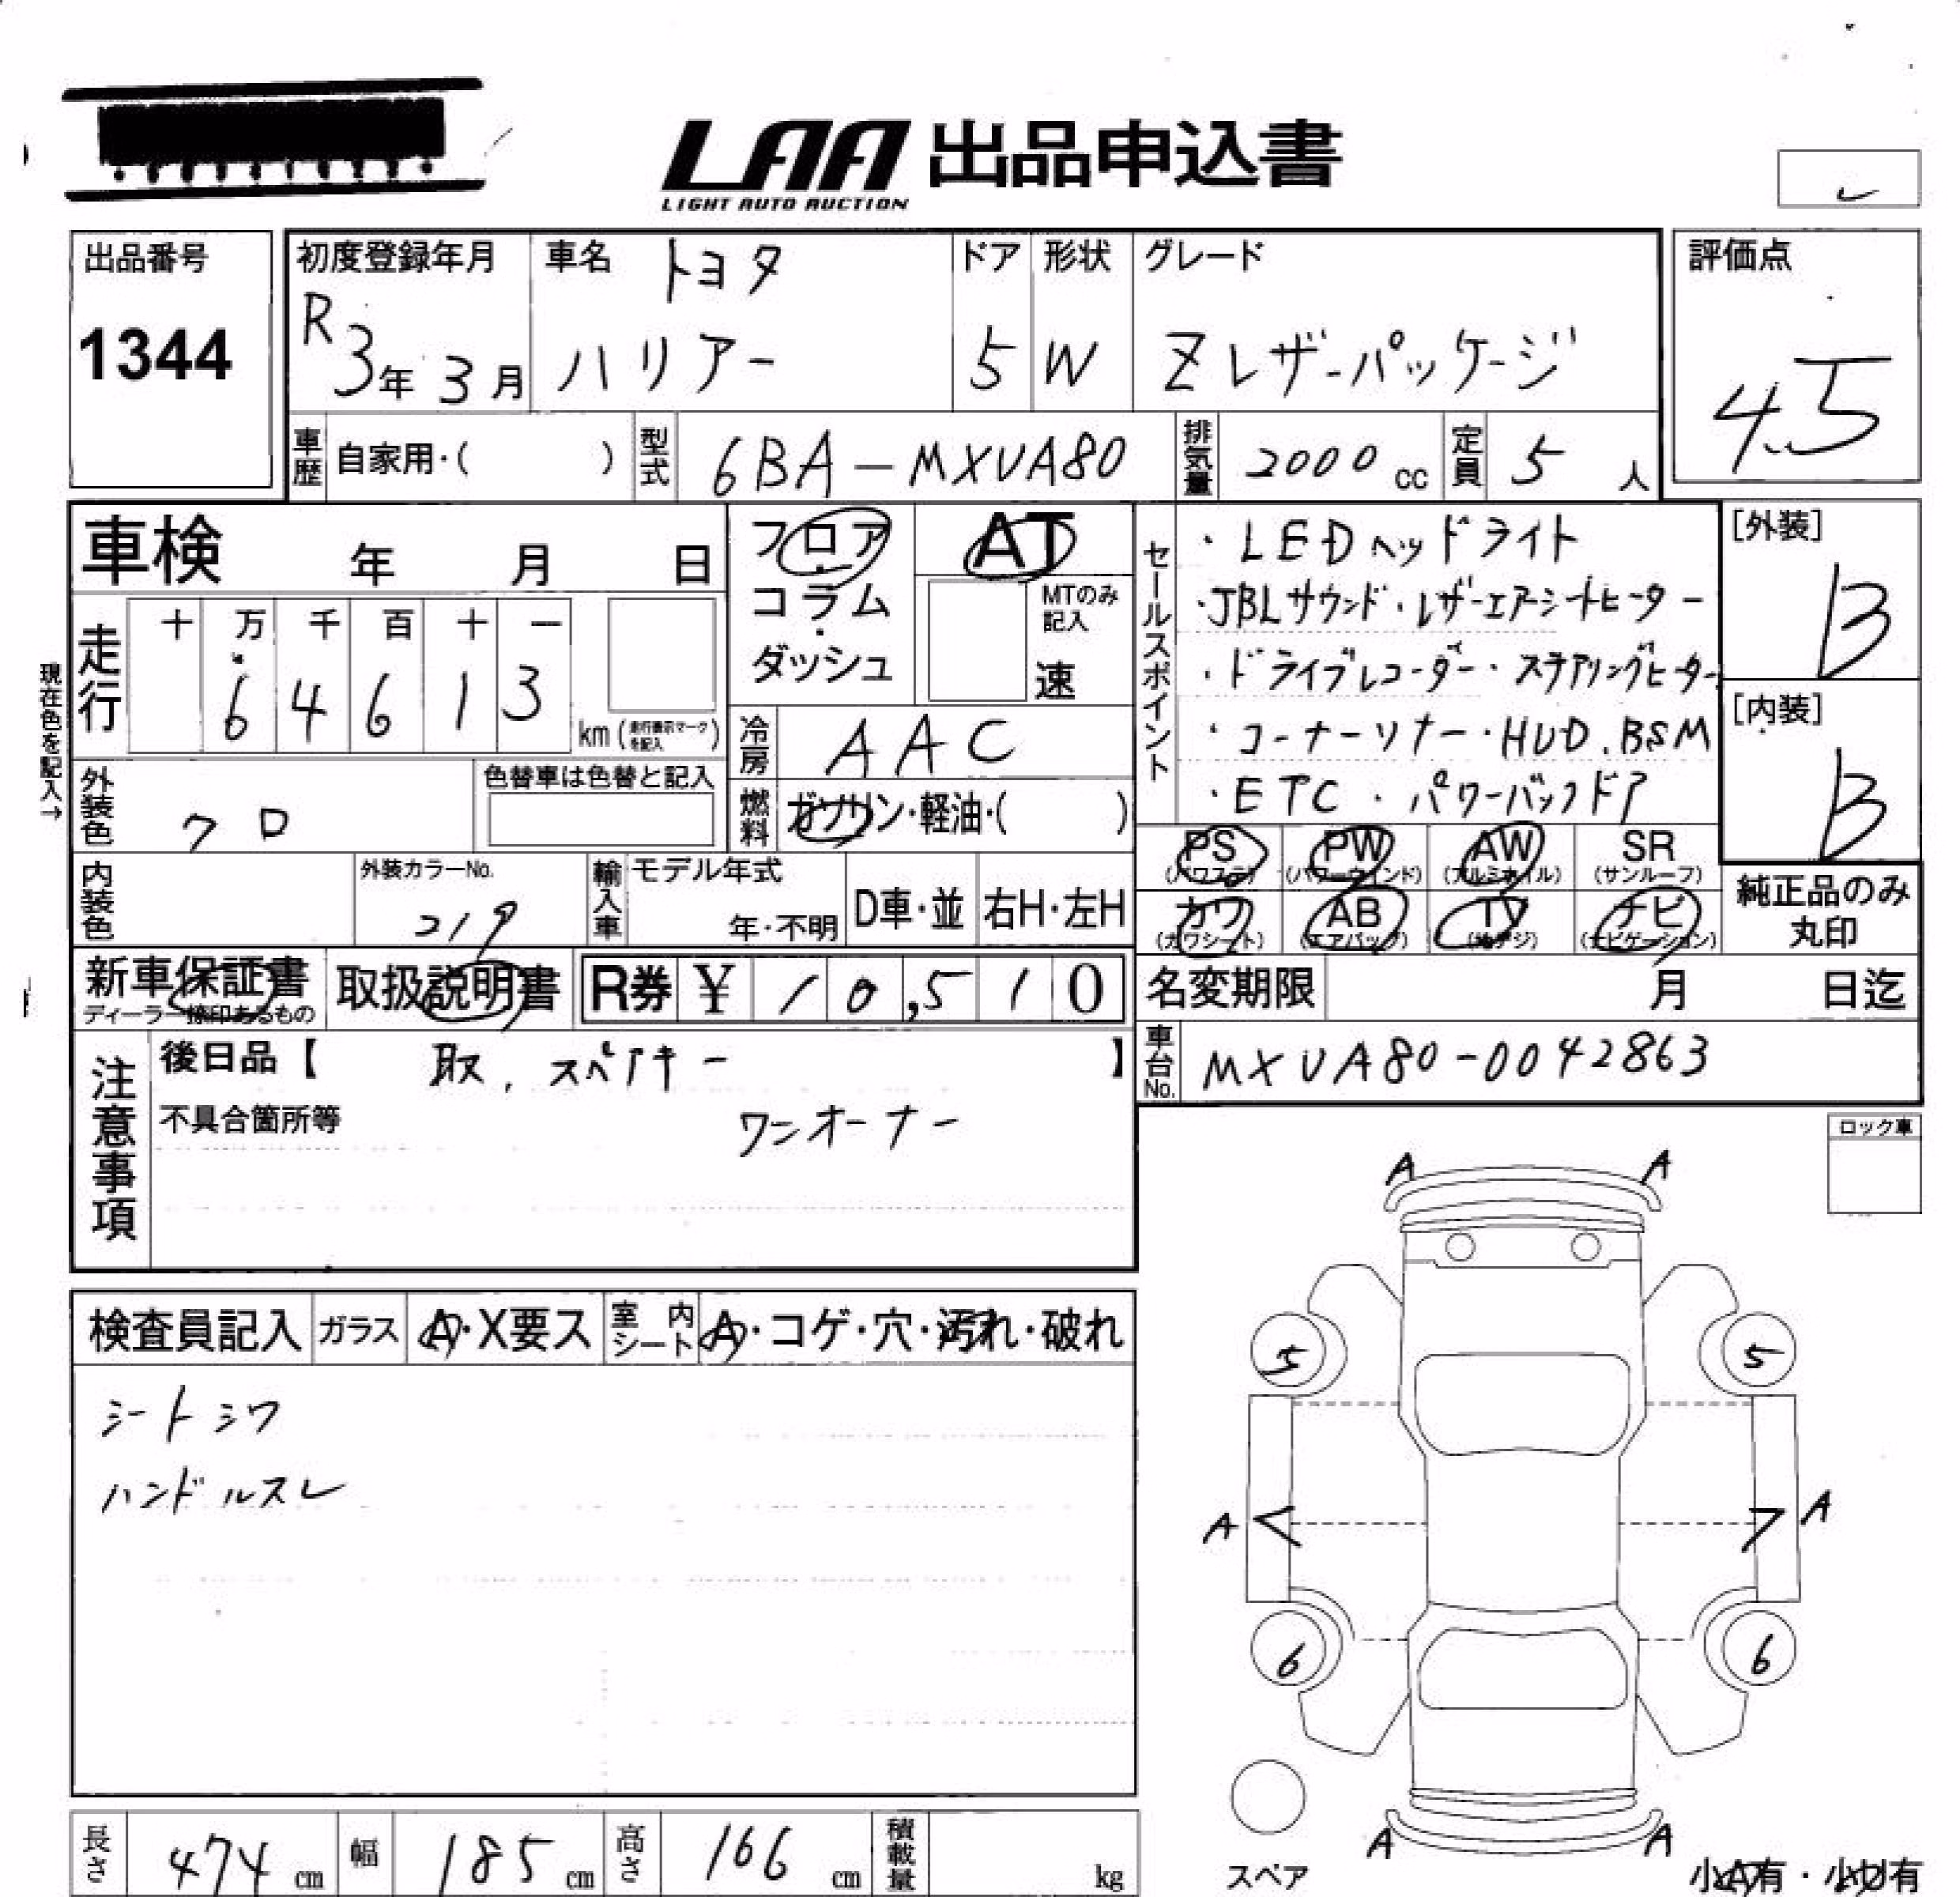 LAA 出品申込書
LIGHT AUTO AUCTION
出品番号
1344
初度登録年月
R3年3月
車名 トヨタ
ハリアー
ドア
5
形状
W
グレード
Zレザーパッケージ
評価点
4.5
車歴 自家用・( )
型式 6BA-MXUA80
排気量 2000cc
定員 5人
車検 年 月 日
フロア
コラム
ダッシュ
AT
MTのみ記入
速
セールスポイント
・LEDヘッドライト
・JBLサウンド・レザーエアーシートヒーター
・ドライブレコーダー・ステアリングヒーター
・コーナーソナー・HUD.BSM
・ETC・パワーバックドア
[外装]
B
[内装]
B
現在色を記入→
走行
十 万 千 百 十 一
6 4 6 1 3
km(走行表示マークを記入)
冷房 AAC
外装色 クロ
色替車は色替と記入
燃料 ガソリン・軽油・( )
PS (パワステ)
PW (パワーウインド)
AW (アルミホイル)
SR (サンルーフ)
カワ (カワシート)
AB (エアバッグ)
TV (地デジ)
ナビ (ナビゲーション)
純正品のみ
丸印
内装色
外装カラーNo.
219
輸入車
モデル年式
年・不明
D車・並
右H・左H
新車保証書
ディーラー捺印あるもの
取扱説明書
R券 ¥ 10,510
名変期限 月 日迄
車台No. MXUA80-0042863
注意事項
後日品【 取、スペアキー 】
不具合箇所等
ワンオーナー
ロック車
検査員記入
ガラス A・X要ス
室内シート A・コゲ・穴・汚れ・破れ
シートシワ
ハンドルスレ
A A
5 5
A A
6 6
A A
スペア
小A有・小U有
長さ 474cm
幅 185cm
高さ 166cm
積載量 kg